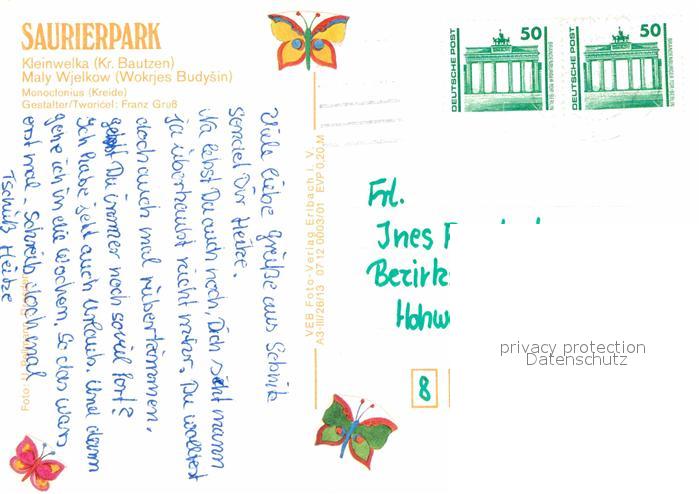 SAURIERPARK
Kleinwelka (Kr. Bautzen)
Maly Wjelkow (Wokrjes Budyšin)
Monoclonius (Kreide)
Gestalter/Tworićel: Franz Gruß
Viele liebe Grüße aus
sendet Dir Heike.
Na lebst Du auch noch, Dich sieht mann
ja überhaubt nicht mehr. Du wolltest
doch auch mal rüberkommen.
Du immer noch soviel fort?
Ich habe jetzt auch Urlaub. Und dann
gehe ich in die Wochen. So das wars
erst mal. Schreib doch mal
Tschüß Heike
Foto:
VEB Foto-Verlag Erlbach i. V.
A3-III/26/13 07 12 0003/01 EVP 0,20 M
DEUTSCHE POST
50
BRANDENBURGER TOR BERLIN
DEUTSCHE POST
50
BRANDENBURGER TOR BERLIN
Frl.
Ines
Bezirk
Hohw
8
privacy protection
Datenschutz